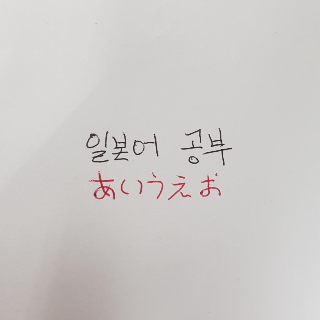 일본어 공부
あいうえお